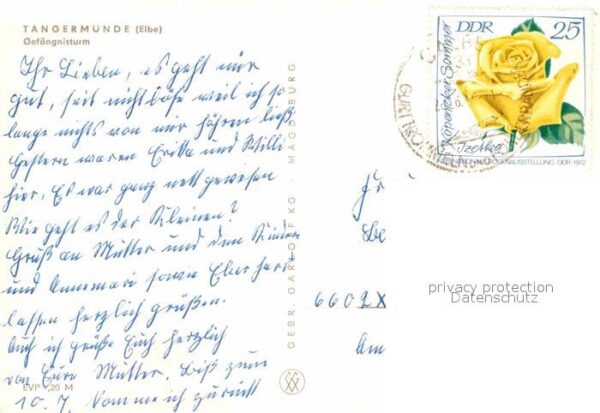 TANGERMÜNDE (Elbe)
Gefängnisturm
Ihr Lieben, es geht mir
gut, seit nicht böse weil ich so
lange nichts von mir hören ließ.
Gestern waren Erika und Willi
hier. Es war ganz nett gewesen.
Wie geht es der Kleinen?
Gruß an Mutter und den Kinder
und Annemarie sowie Eberhard
lassen herzlich grüßen.
Auch ich grüße Euch herzlich
von Eure Mutter. Biß zum
10. 7. komme ich zurück
EVP -,20 M
GEBR. GARLOFF KG MAGDEBURG
DDR 25
Köpenicker Sommer
Izetka
ROSENAUSSTELLUNG DDR 1972
6602
Am
privacy protection
Datenschutz